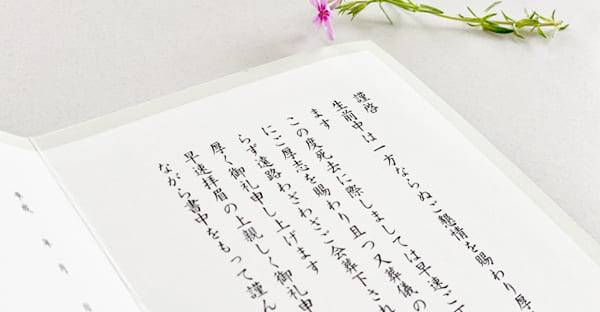 謹啓
生前中は一方ならぬご懇情を賜わり厚
ます
この度死去に際しましては早速ご丁
にご厚志を賜わり且つ又葬儀の
らず遠路わざわざご会葬下され
厚く御礼申し上げます
早速拝眉の上親しく御礼申
ながら書中をもって謹ん
平成 年 月